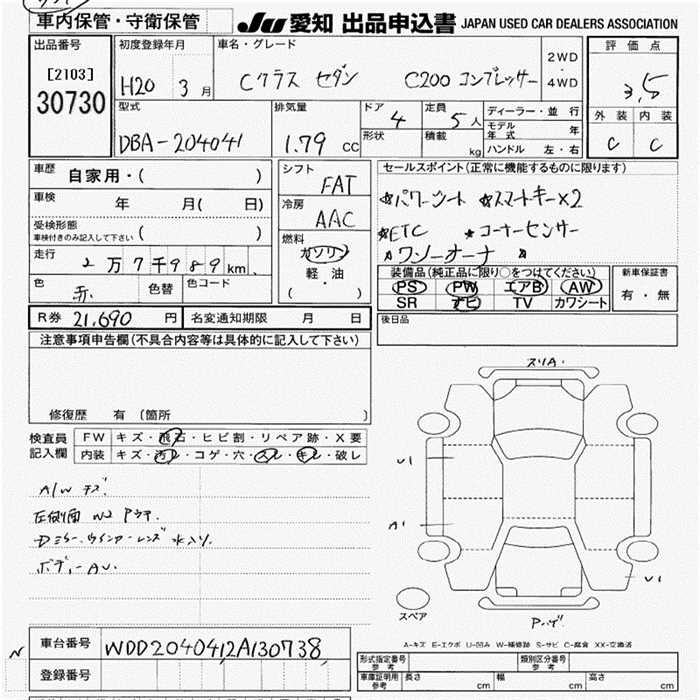 車内保管・守衛保管
JU 愛知 出品申込書 JAPAN USED CAR DEALERS ASSOCIATION
出品番号 初度登録年月 車名・グレード 評価点
[2103] H20 3月 Cクラス セダン C200 コンプレッサー 2WD・4WD 3,5
30730 外装 内装
型式 排気量 ドア 定員 ディーラー・並行
DBA-204041 1.79 cc 4 5人 C C
形状 積載 kg モデル年式 年
ハンドル 左・右
車歴 自家用・( )
シフト FAT
セールスポイント(正常に機能するものに限ります)
車検 年 月( 日)
冷房 AAC
☆パワーシート ☆スマートキー×2
受検形態
車検付きのみ記入して下さい ( )
☆ETC ★コーナーセンサー
燃料 ガソリン
☆ワンオーナー ☆
走行 2万7千989km
軽・油
( ・ )
装備品(純正品に限り○をつけてください) 新車保証書
色 赤 色替 色コード
PS PW エアB AW 有・無
SR ナビ TV カワシート
R券 21,690 円 名変通知期限 月 日
後日品
注意事項申告欄(不具合内容等は具体的に記入して下さい)
修復歴 有(箇所 )
検査員 FW キズ・飛石・ヒビ割・リペア跡・X要
記入欄 内装 キズ・汚レ・コゲ・穴・スレ・キレ・破レ
スリA'
A/W キズ.
左側面 W2 アリ.
Dミラー.ウインカーレンズ 水入リ.
ボディーAU.
U1
A1
U1
スペア
A-キズ E-エクボ U-凹み W-補修跡 S-サビ C-腐食 XX-交換済
車台番号 WDD2040412A130738
登録番号
形式指定番号 参考 類別区分番号 参考
車庫証明用 参考 長さ cm 幅 cm 高さ cm